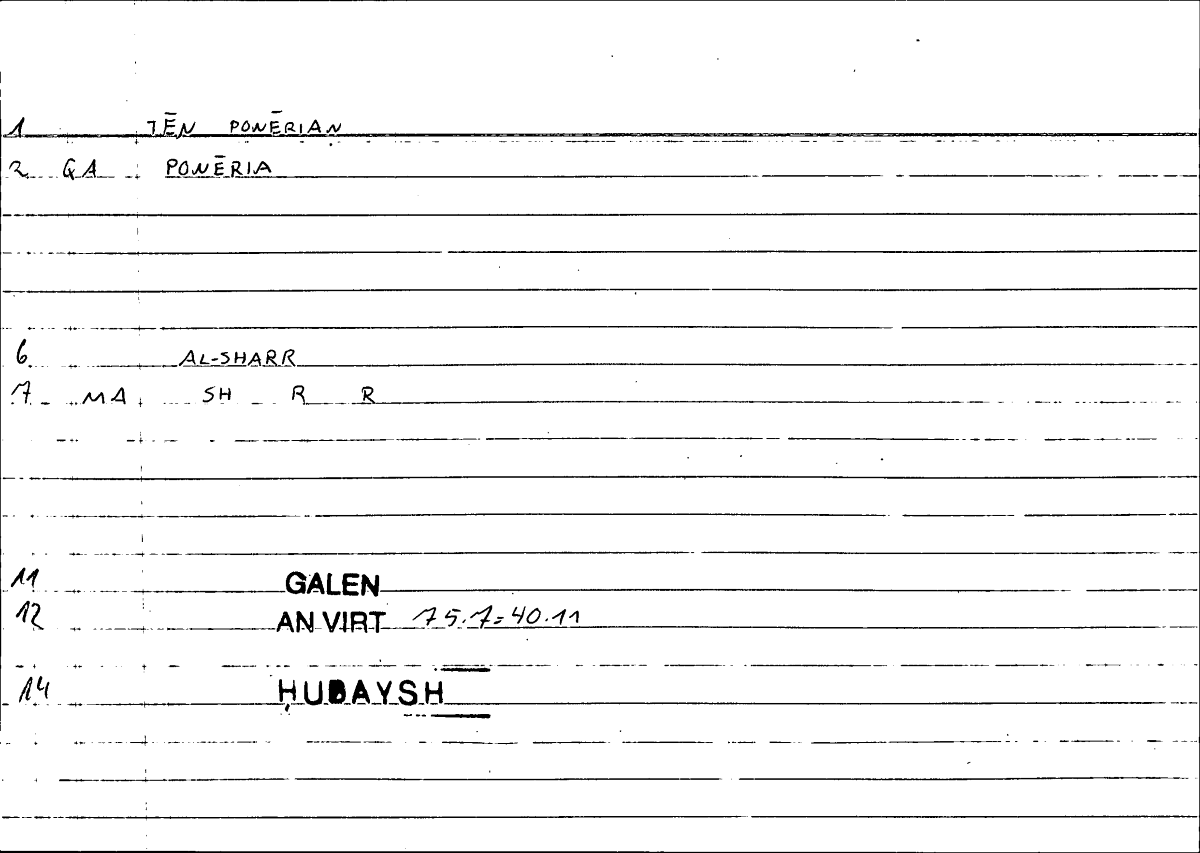 1 TĒN PONĒRIAN
2 QA PONĒRIA
6 AL-SHARR
7 MA SH R R
11 GALEN
12 AN VIRT 75.7=40.11
14 ḤUBAYSH